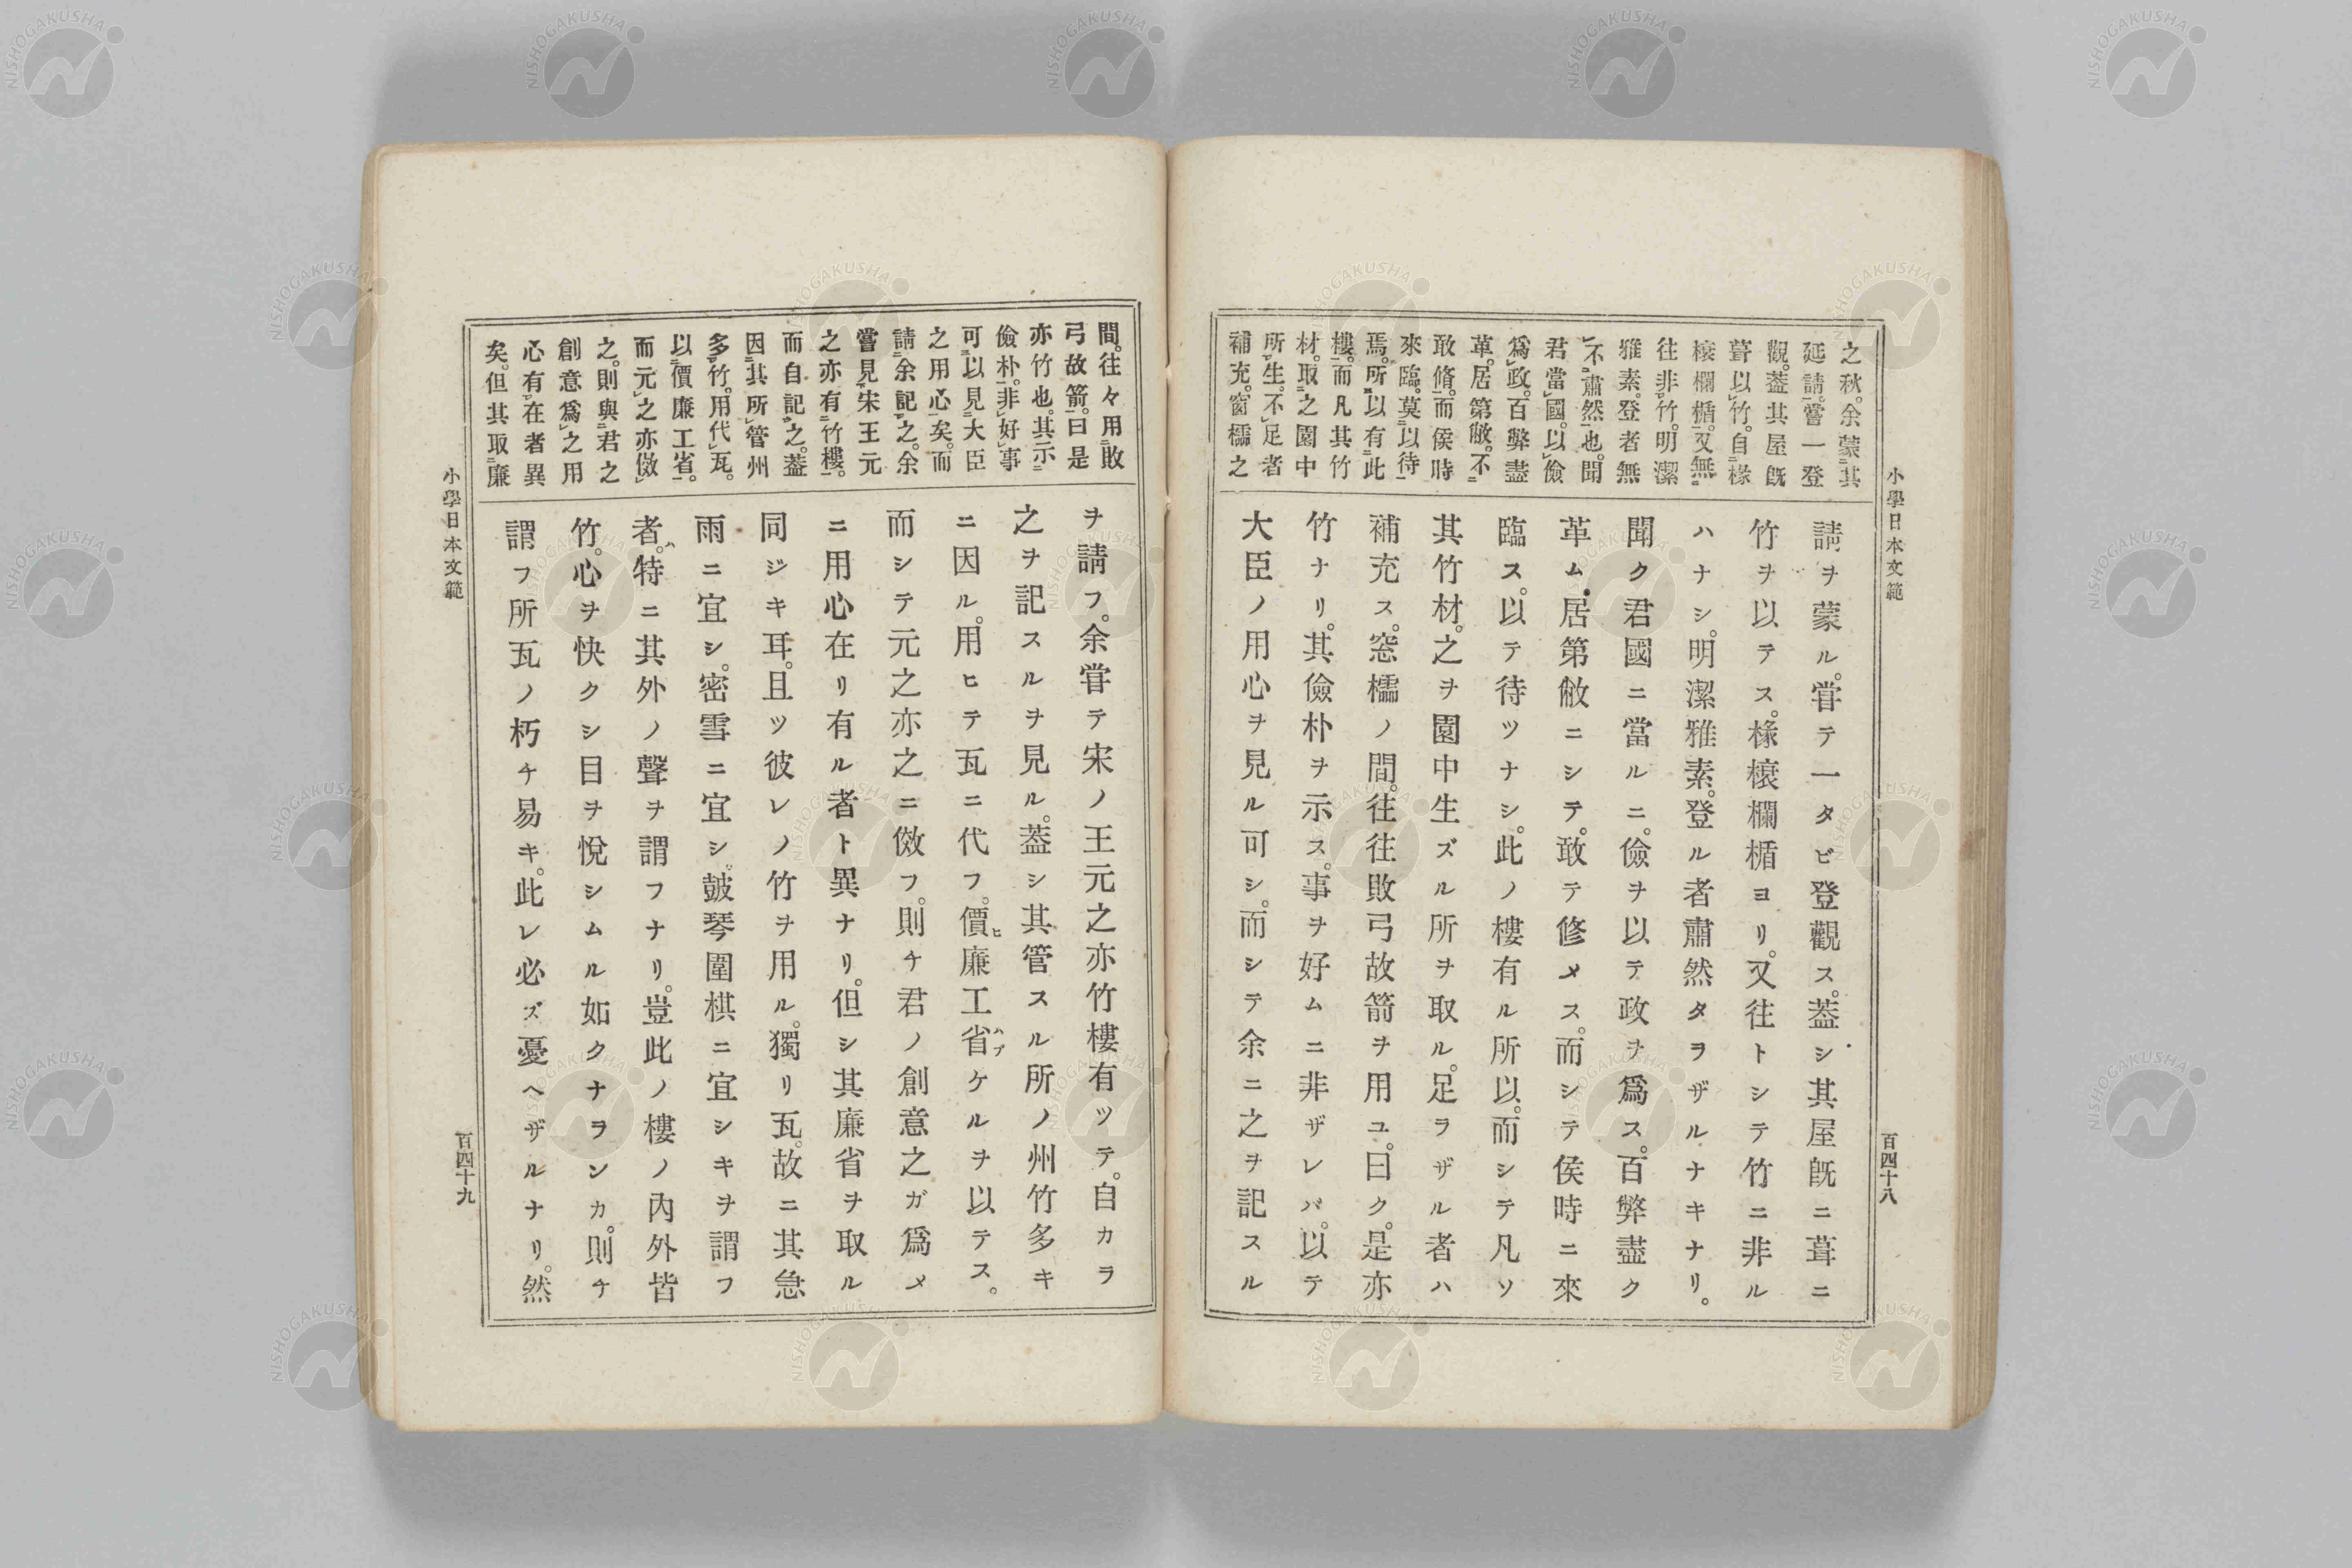 小學日本文範
百四十八
之秋。余蒙其
延請。嘗一登
觀。蓋其屋既
葺以竹。自椽
榱欄楯。又無
往非竹。明潔
雅素。登者無
不肅然也。聞
君當國。以儉
爲政。百弊盡
革。居第敝。不
敢脩。而侯時
來臨。莫以待
焉。所以有此
樓。而凡其竹
材。取之園中
所生。不足者
補充。窗櫺之
請ヲ蒙ル。嘗テ一タビ登觀ス。蓋シ其屋既ニ葺ニ
竹ヲ以テス。椽榱欄楯ヨリ。又往トシテ竹ニ非ル
ハナシ。明潔雅素。登ル者肅然タラザルナキナリ。
聞ク君國ニ當ルニ。儉ヲ以テ政ヲ爲ス。百弊盡ク
革ム。居第敝ニシテ。敢テ修メス。而シテ侯時ニ來
臨ス。以テ待ツナシ。此ノ樓有ル所以。而シテ凡ソ
其竹材。之ヲ園中生ズル所ヲ取ル。足ラザル者ハ
補充ス。窓櫺ノ間。往往敗弓故箭ヲ用ユ。曰ク。是亦
竹ナリ。其儉朴ヲ示ス。事ヲ好ムニ非ザレバ。以テ
大臣ノ用心ヲ見ル可シ。而シテ余ニ之ヲ記スル
間。往々用敗
弓故箭。曰是
亦竹也。其示
儉朴。非好事
可以見大臣
之用心矣。而
請余記之。余
嘗見宋王元
之亦有竹樓。
而自記之。蓋
因其所管州
多竹。用代瓦。
以價廉工省。
而元之亦倣
之。則與君之
創意爲之用
心有在者異
矣。但其取廉
ヲ請フ。余甞テ宋ノ王元之亦竹樓有ツテ。自カラ
之ヲ記スルヲ見ル。蓋シ其管スル所ノ州竹多キ
ニ因ル。用ヒテ瓦ニ代フ。價ヒ廉工省ハブケルヲ以テス。
而シテ元之亦之ニ倣フ。則チ君ノ創意之ガ爲メ
ニ用心在リ有ル者ト異ナリ。但シ其廉省ヲ取ル
同ジキ耳。且ツ彼レノ竹ヲ用ル。獨リ瓦。故ニ其急
雨ニ宜シ。密雪ニ宜シ。鼓琴圍棋ニ宜シキヲ謂フ
者ハ。特ニ其外ノ聲ヲ謂フナリ。豈此ノ樓ノ內外皆
竹。心ヲ快クシ目ヲ悅シムル如クナランカ。則チ
謂フ所瓦ノ朽チ易キ。此レ必ズ憂ヘザルナリ。然
小學日本文範
百四十九